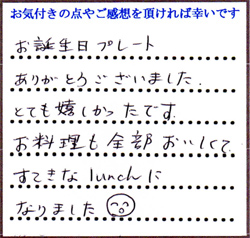 お気付きの点やご感想を頂ければ幸いです
お誕生日プレート
ありがとうございました.
とても嬉しかったです.
お料理も全部おいしくて、
すてきなlunchに
なりました